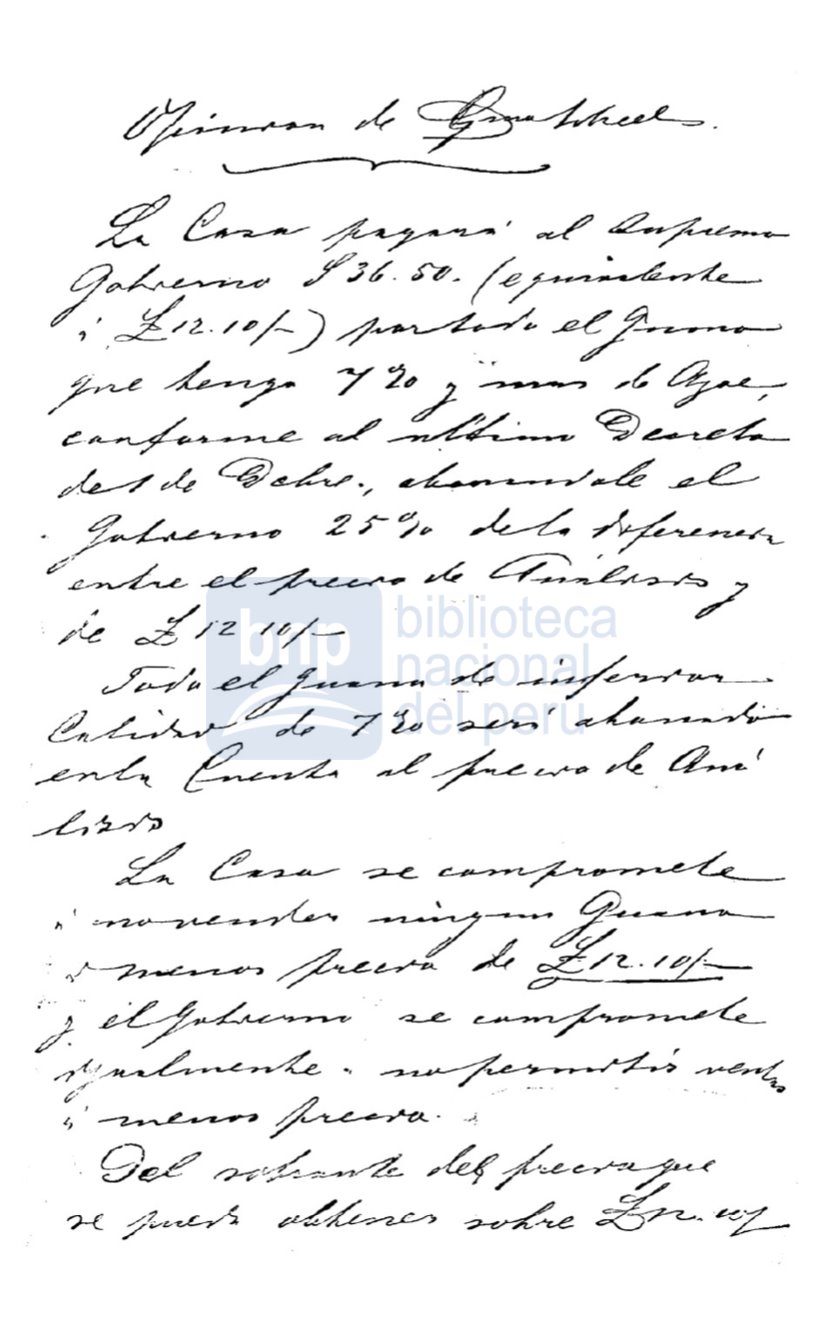 Opinion de
La Casa pagará al Supremo
Gobierno $36.50. (equivalente
á £12.10/-) por todo el Guano
que tenga 7% y mas de Azoe,
conforme al ultimo Decreto
del de Dcbre., abonandole el
Gobierno 25% de la diferencia
entre el precio de Análisis y
de £12 10/-
bnp biblioteca
nacional
del perú
Todo el guano de inferior
Calidad de 7% será abonado
en la Cuenta al precio de Aná
lisis
La Casa se compromete
á no vender ningun Guano
á menos precio de £12.10/-
y el Gobierno se compromete
igualmente á no permitir ventas
á menos precio.
Del sobrante del precio que
se pueda obtener sobre £12.10/